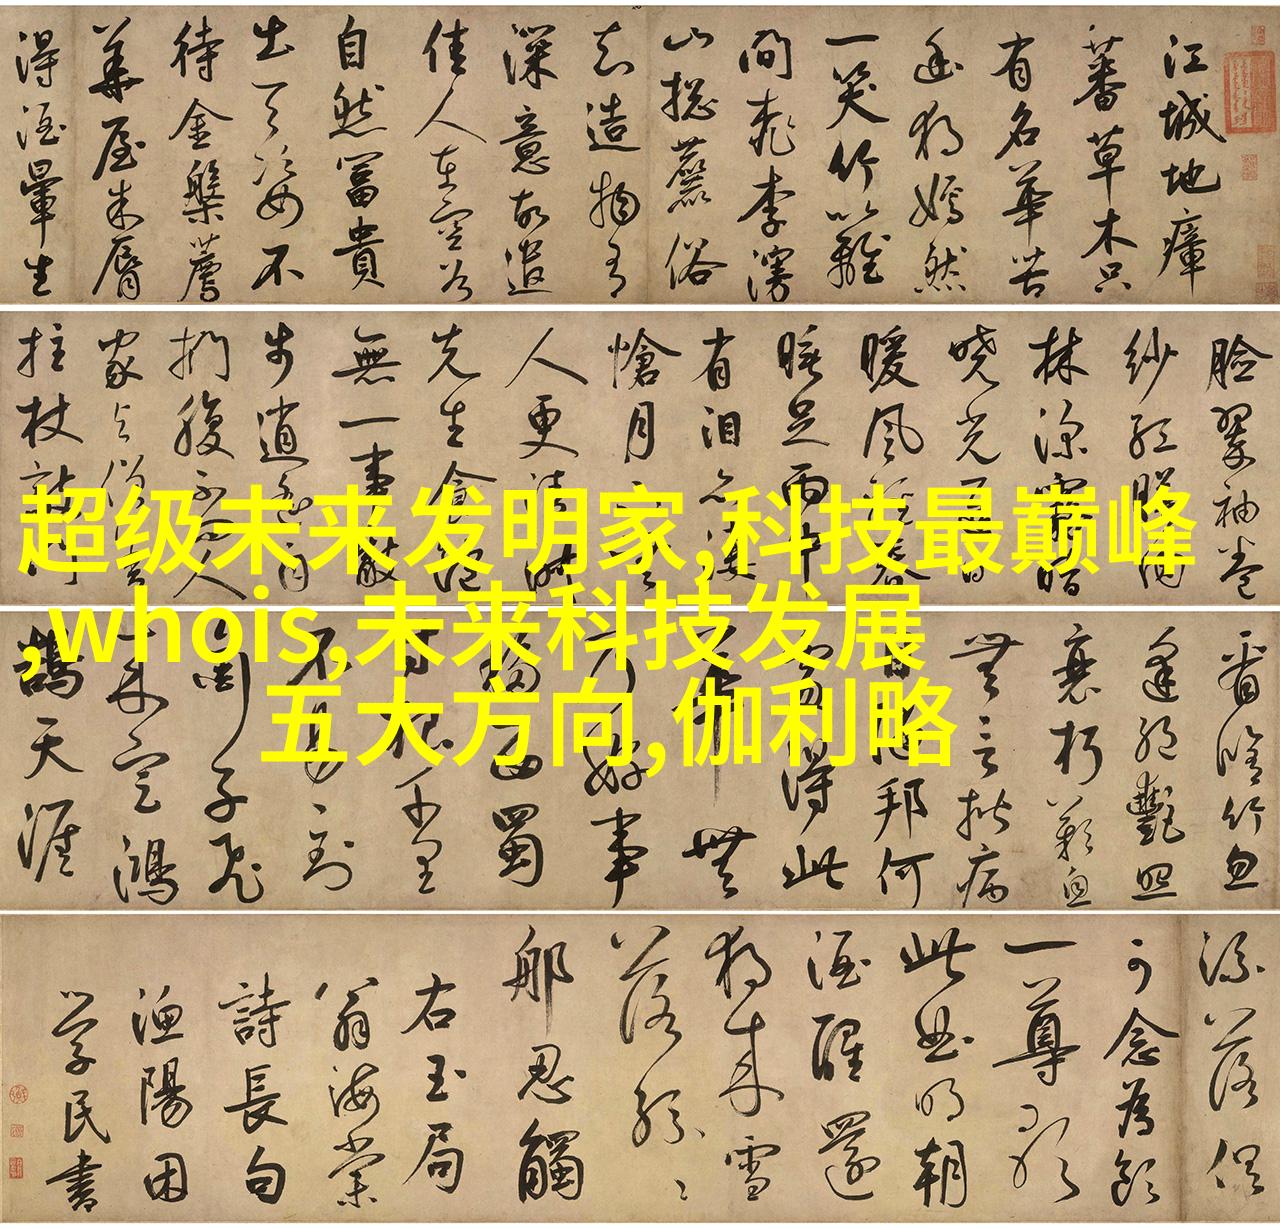 江城地瘴
蕃草木只
有名華苦
幽獨嫣然
一笑竹籬
間桃李漫
山揔麤俗
知造物有
深意故遣
佳人在空谷
自然富貴
出天姿不
待金盤薦
華屋朱脣
得酒暈生
臉翠袖卷
紗紅映肉
林深霧暗
曉光遲日
暖風輕春
睡足雨中
有淚亦悽
愴月下無
人更清淑
先生食飽
無一事散
步逍遙自
捫腹不問人
家與僧舍
拄杖敲門
看脩竹忽
逢絕艷照
衰朽歎息
無言揩病
目陋邦何
處得此
花無
乃好事
移西蜀
寸根千里
不易到
銜子飛
來定鴻
鵠天涯
流落俱
可念為飲
一尊歌
此曲明朝
酒醒還
獨來雪
落紛紛
那忍觸
右玉局
翁海棠
詩長句
漁陽困
學民書
超级未来发明家,科技最巅峰
,whois,未来科技发展
五大方向,伽利略